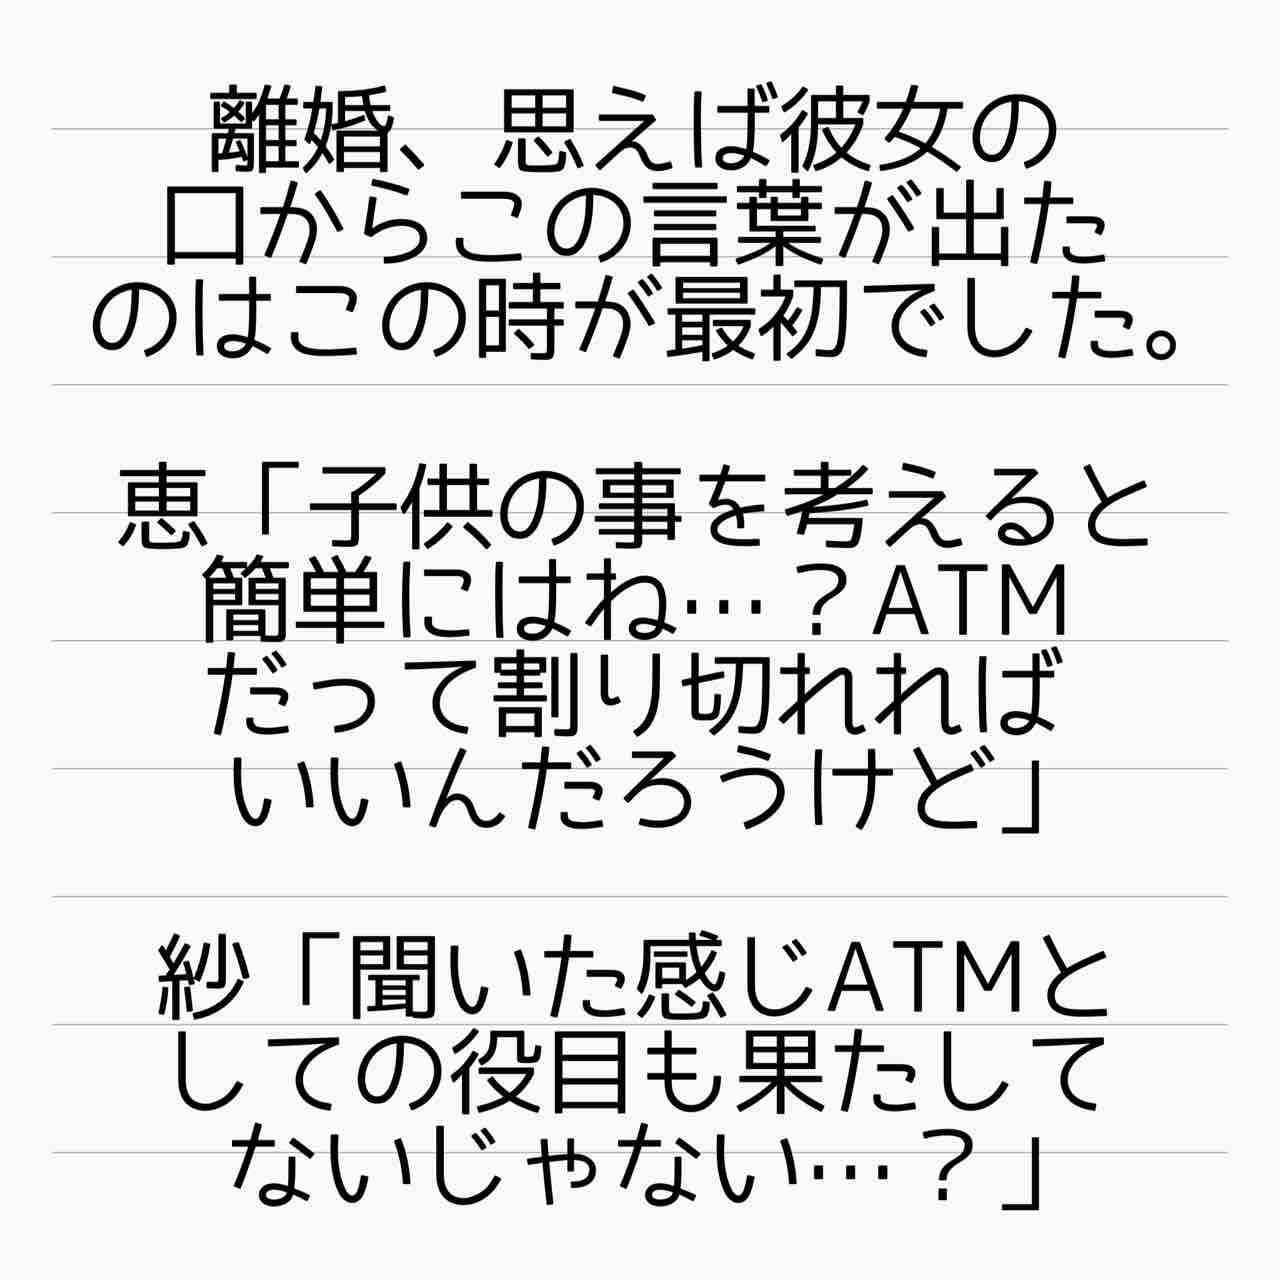 離婚、思えば彼女の
口からこの言葉が出た
のはこの時が最初でした。
恵「子供の事を考えると
簡単にはね…？ATM
だって割り切れれば
いいんだろうけど」
紗「聞いた感じATMと
しての役目も果たして
ないじゃない…？」